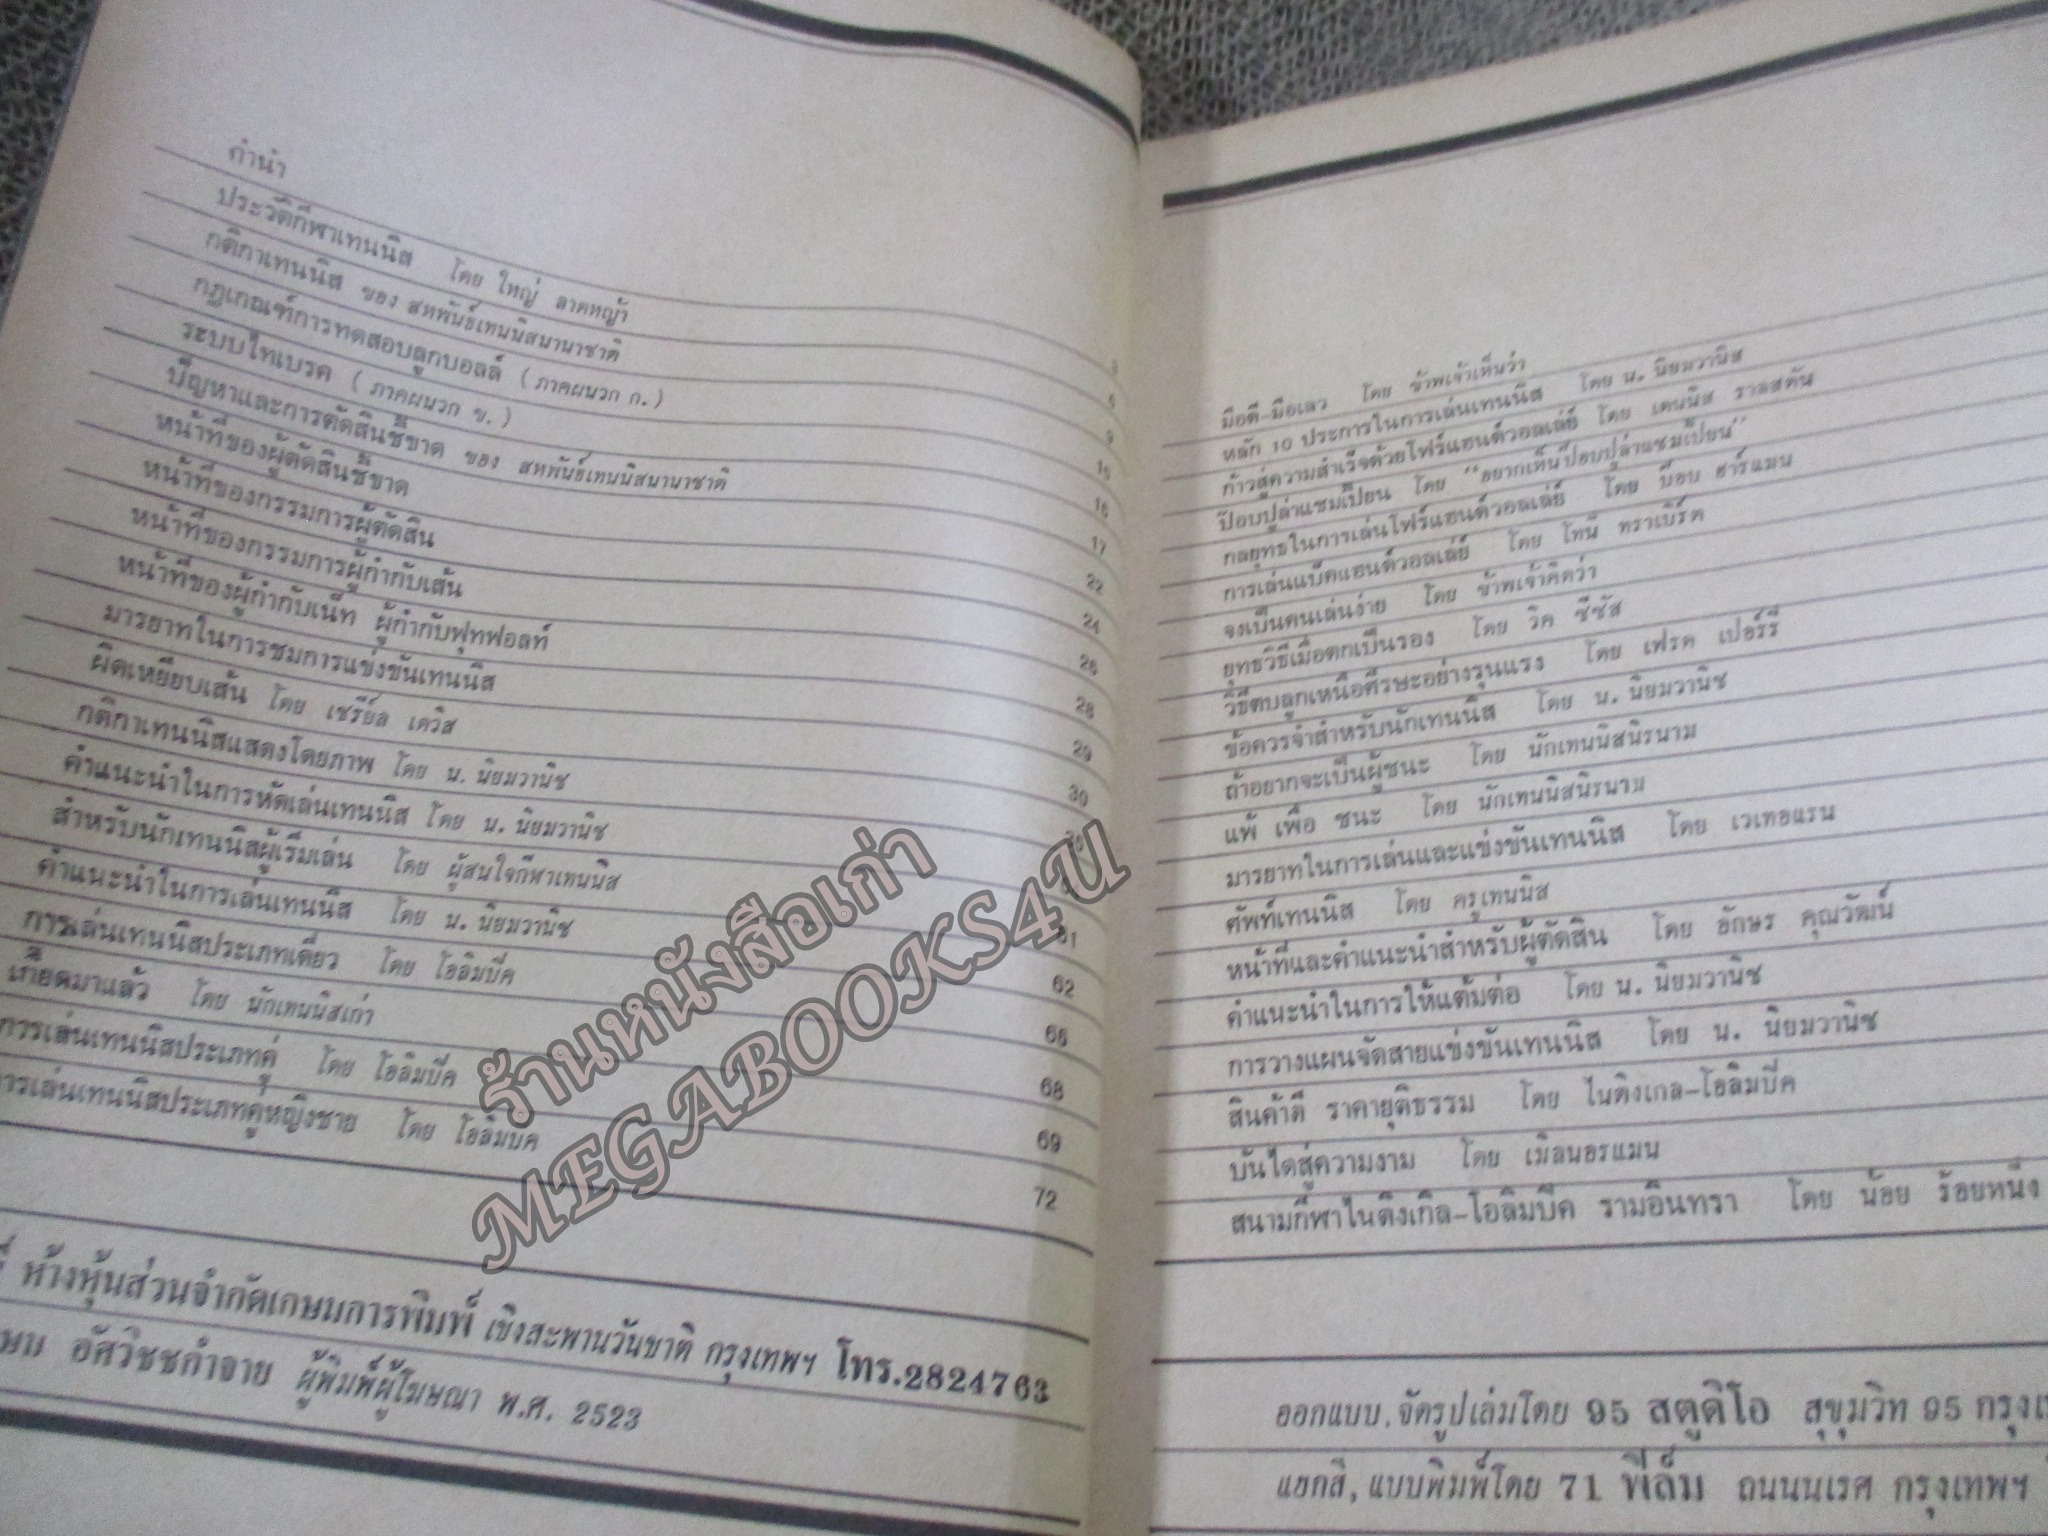 คำนำ
ประวัติกีฬาเทนนิส โดย ใหญ่ ลาดหญ้า
กติกาเทนนิส ของ สหพันธ์เทนนิสนานาชาติ
กฎเกณฑ์การทดสอบลูกบอลล์ (ภาคผนวก ก.)
ระบบไทเบรค (ภาคผนวก ข.)
ปัญหาและการตัดสินชี้ขาด ของ สหพันธ์เทนนิสนานาชาติ
หน้าที่ของผู้ตัดสินชี้ขาด
หน้าที่ของกรรมการผู้ตัดสิน
หน้าที่ของกรรมการผู้กำกับเส้น
หน้าที่ของผู้กำกับเน็ท ผู้กำกับฟุทฟอลท์
มารยาทในการชมการแข่งขันเทนนิส
ผิดเหยียบเส้น โดย เชรี่ยล เดวิส
กติกาเทนนิสแสดงโดยภาพ โดย น. นิยมวานิช
คำแนะนำในการหัดเล่นเทนนิส โดย น. นิยมวานิช
สำหรับนักเทนนิสผู้เริ่มเล่น โดย ผู้สนใจกีฬาเทนนิส
คำแนะนำในการเล่นเทนนิส โดย น. นิยมวานิช
การเล่นเทนนิสประเภทเดี่ยว โดย โอลิมปิค
โดย นักเทนนิสเก่า
การเล่นเทนนิสประเภทคู่ โดย โอลิมปิค
การเล่นเทนนิสประเภทคู่หญิงชาย โดย โอลิมปิค
6
9
15
16
17
22
24
26
28
29
30
61
62
66
68
69
72
ห้างหุ้นส่วนจำกัดเกษมการพิมพ์ เชิงสะพานวันชาติ กรุงเทพฯ โทร.2824763
อัศวิชชกำจาย ผู้พิมพ์ผู้โฆษณา พ.ศ. 2523
มือดี-มือเลว โดย ข้าพเจ้าเห็นว่า
หลัก 10 ประการในการเล่นเทนนิส โดย น. นิยมวานิช
ก้าวสู่ความสำเร็จด้วยโฟร์แฮนด์วอลเล่ย์ โดย เดนนิส ราลสตัน
ป๊อบปูล่าแชมเปี้ยน โดย “อยากเห็นป๊อบปูล่าแชมเปี้ยน”
กลยุทธในการเล่นโฟร์แฮนด์วอลเล่ย์ โดย บ๊อบ ฮาร์แมน
การเล่นแบ็คแฮนด์วอลเล่ย์ โดย โทนี่ ทราเบิร์ต
จงเป็นคนเล่นง่าย โดย ข้าพเจ้าคิดว่า
ยุทธวิธีเมื่อตกเป็นรอง โดย วิค ซีซัส
วิธีตบลูกเหนือศีรษะอย่างรุนแรง โดย เฟรด เปอร์รี่
ข้อควรจำสำหรับนักเทนนิส โดย น. นิยมวานิช
ถ้าอยากจะเป็นผู้ชนะ โดย นักเทนนิสนิรนาม
แพ้ เพื่อ ชนะ โดย นักเทนนิสนิรนาม
มารยาทในการเล่นและแข่งขันเทนนิส โดย เวเทอแรน
ศัพท์เทนนิส โดย ครูเทนนิส
หน้าที่และคำแนะนำสำหรับผู้ตัดสิน โดย อักษร คุณวัฒน์
คำแนะนำในการให้แต้มต่อ โดย น. นิยมวานิช
การวางแผนจัดสายแข่งขันเทนนิส โดย น. นิยมวานิช
สินค้าดี ราคายุติธรรม โดย ไนติงเกล-โอลิมปิค
บันไดสู่ความงาม โดย เมิลนอรแมน
สนามกีฬาไนติงเกิล-โอลิมปิค รามอินทรา โดย น้อย ร้อยหนึ่ง
ออกแบบ, จัดรูปเล่มโดย 95 สตูดิโอ สุขุมวิท 95
แยกสี, แบบพิมพ์โดย 71 ฟิล์ม ถนนนเรศ กรุงเทพฯ
ร้านหนังสือเก่า
MEGABOOKS4U